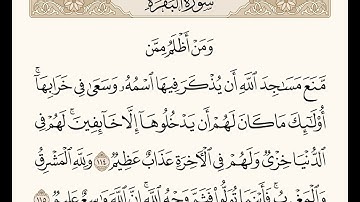 سورة البقرة
وَمَنْ أَظْلَمُ مِمَّن
مَّنَعَ مَسَٰجِدَ ٱللَّهِ أَن يُذْكَرَ فِيهَا ٱسْمُهُۥ وَسَعَىٰ فِى خَرَابِهَآ ۚ
أُو۟لَٰٓئِكَ مَا كَانَ لَهُمْ أَن يَدْخُلُوهَآ إِلَّا خَآئِفِينَ ۚ لَهُمْ فِى
ٱلدُّنْيَا خِزْىٌ وَلَهُمْ فِى ٱلْءَاخِرَةِ عَذَابٌ عَظِيمٌ ١١٤ وَلِلَّهِ ٱلْمَشْرِقُ
وَٱلْمَغْرِبُ ۚ فَأَيْنَمَا تُوَلُّوا۟ فَثَمَّ وَجْهُ ٱللَّهِ ۚ إِنَّ ٱللَّهَ وَٰسِعٌ عَلِيمٌ ١١٥